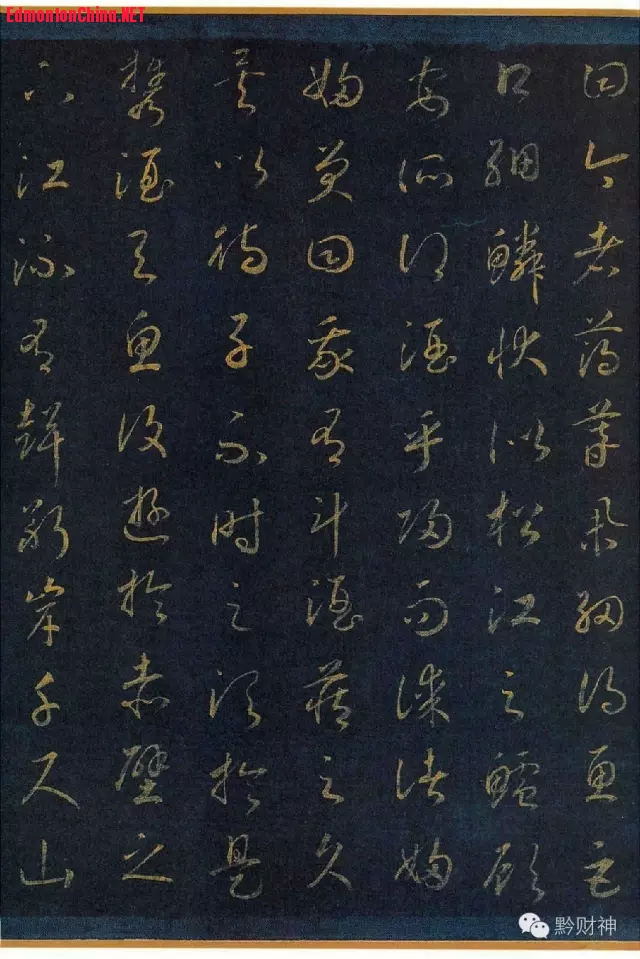 EdmontonChina.NET
曰今者薄暮舉網得魚巨
口細鱗狀似松江之鱸顧
安所得酒乎歸而謀諸婦
婦曰我有斗酒藏之久
矣以待子不時之須於是
攜酒與魚復遊於赤壁之
下江流有聲斷岸千尺山
黔财神